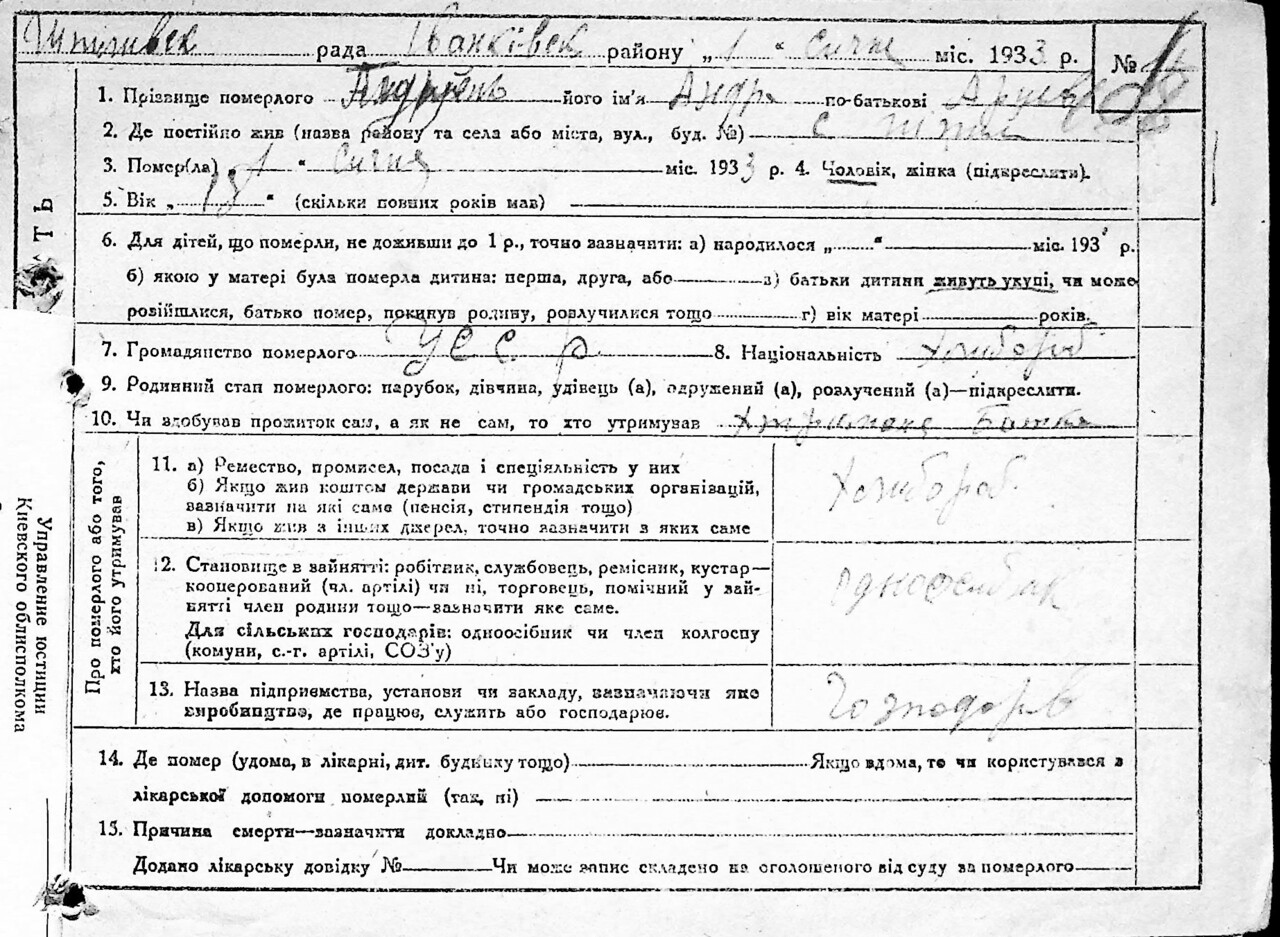 рада Іванківск району „1“ Січня міс. 1933 р. №
1. Прізвище померлого його ім'я Андр по-батькові
2. Де постійно жив (назва району та села або міста, вул., буд. №) с
3. Помер(ла) „1“ Січня міс. 1933 р. 4. Чоловік, жінка (підкреслити).
5. Вік „ “ (скільки повних років мав)
6. Для дітей, що померли, не доживши до 1 р., точно зазначити: а) народилося „ “ міс. 193 р.
б) якою у матері була померла дитина: перша, друга, або в) батьки дитини живуть укупі, чи може
розійшлися, батько помер, покинув родину, розлучилися тощо г) вік матері років.
7. Громадянство померлого УССР 8. Національність Хлибороб
9. Родинний стан померлого: парубок, дівчина, удівець (а), одружений (а), розлучений (а)—підкреслити.
10. Чи здобував прожиток сам, а як не сам, то хто утримував Батька
Про померлого або того,
хто його утримував
11. а) Ремество, промисел, посада і спеціяльність у них
б) Якщо жив коштом держави чи громадських організацій,
зазначити на які саме (пенсія, стипендія тощо)
в) Якщо жив з інших джерел, точно зазначити з яких саме
Хлибороб.
12. Становище в зайнятті: робітник, службовець, ремісник, кустар—
кооперований (чл. артілі) чи ні, торговець, помічний у зай-
нятті член родини тощо—зазначити яке саме.
Для сільських господарів: одноосібник чи член колгоспу
(комуни, с.-г. артілі, СОЗ'у)
13. Назва підприємства, установи чи закладу, зазначаючи яке
виробництво, де працює, служить або господарює.
14. Де помер (удома, в лікарні, дит. будинку тощо) Якщо вдома, то чи користувався з
лікарської допомоги померлий (так, ні)
15. Причина смерти—зазначити докладно
Додано лікарську довідку № Чи може запис складено на оголошеного від суду за померлого
Управление юстиции
Киевского облисполкома